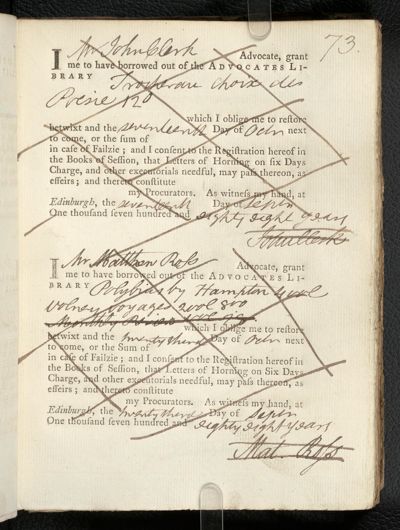 73.
I Mr John Clerk Advocate, grant
me to have borrowed out of the ADVOCATES LI-
BRARY choix des
Poesie 12o
which I oblige me to restore
betwixt and the seventeenth Day of Octr next
to come, or the sum of
in case of Failzie; and I consent to the Registration hereof in
the Books of Session, that Letters of Horning on six Days
Charge, and other executorials needful, may pass thereon, as
effeirs; and thereto constitute
my Procurators. As witness my hand, at
Edinburgh, the seventeenth Day of Septr
One thousand seven hundred and eighty eight years
John Clerk
I Mr Matthew Ross Advocate, grant
me to have borrowed out of the ADVOCATES LI-
BRARY Polybius by Hampton 4 vol
Volney voyages 2 vol 8vo
Monthly Review
which I oblige me to restore
betwixt and the twenty third Day of Octr next
to come, or the Sum of
in case of Failzie; and I consent to the Registration hereof in
the Books of Session, that Letters of Horning on Six Days
Charge, and other executorials needful, may pass thereon, as
effeirs; and thereto constitute
my Procurators. As witness my hand, at
Edinburgh, the twenty third Day of Septr
One thousand seven hundred and eighty eight years
Mat. Ross